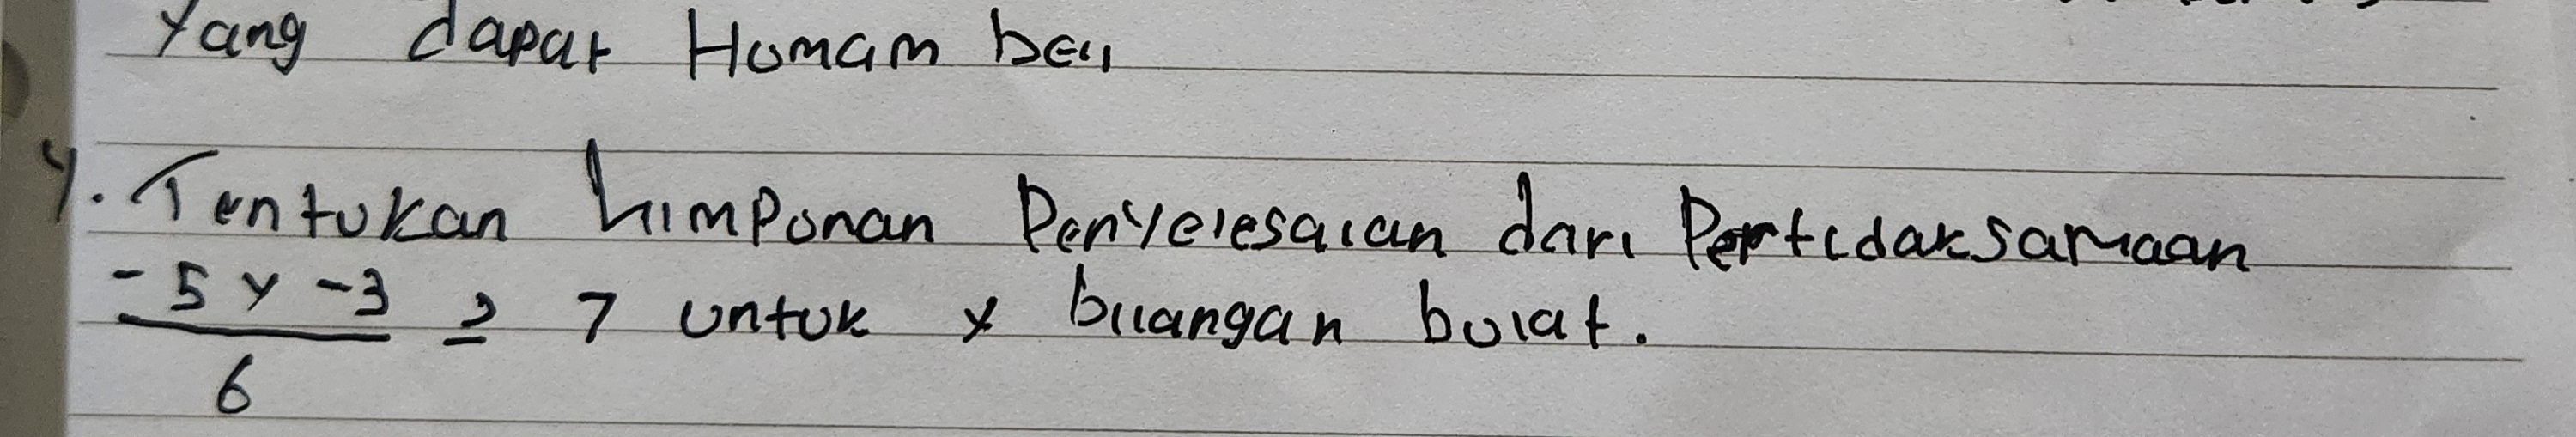 Yang dapat Homam beli
4. Tentukan himpunan Penyelesaian dari Pertidaksamaan
-5x -3 ≥ 7 untuk x bilangan bulat.
6